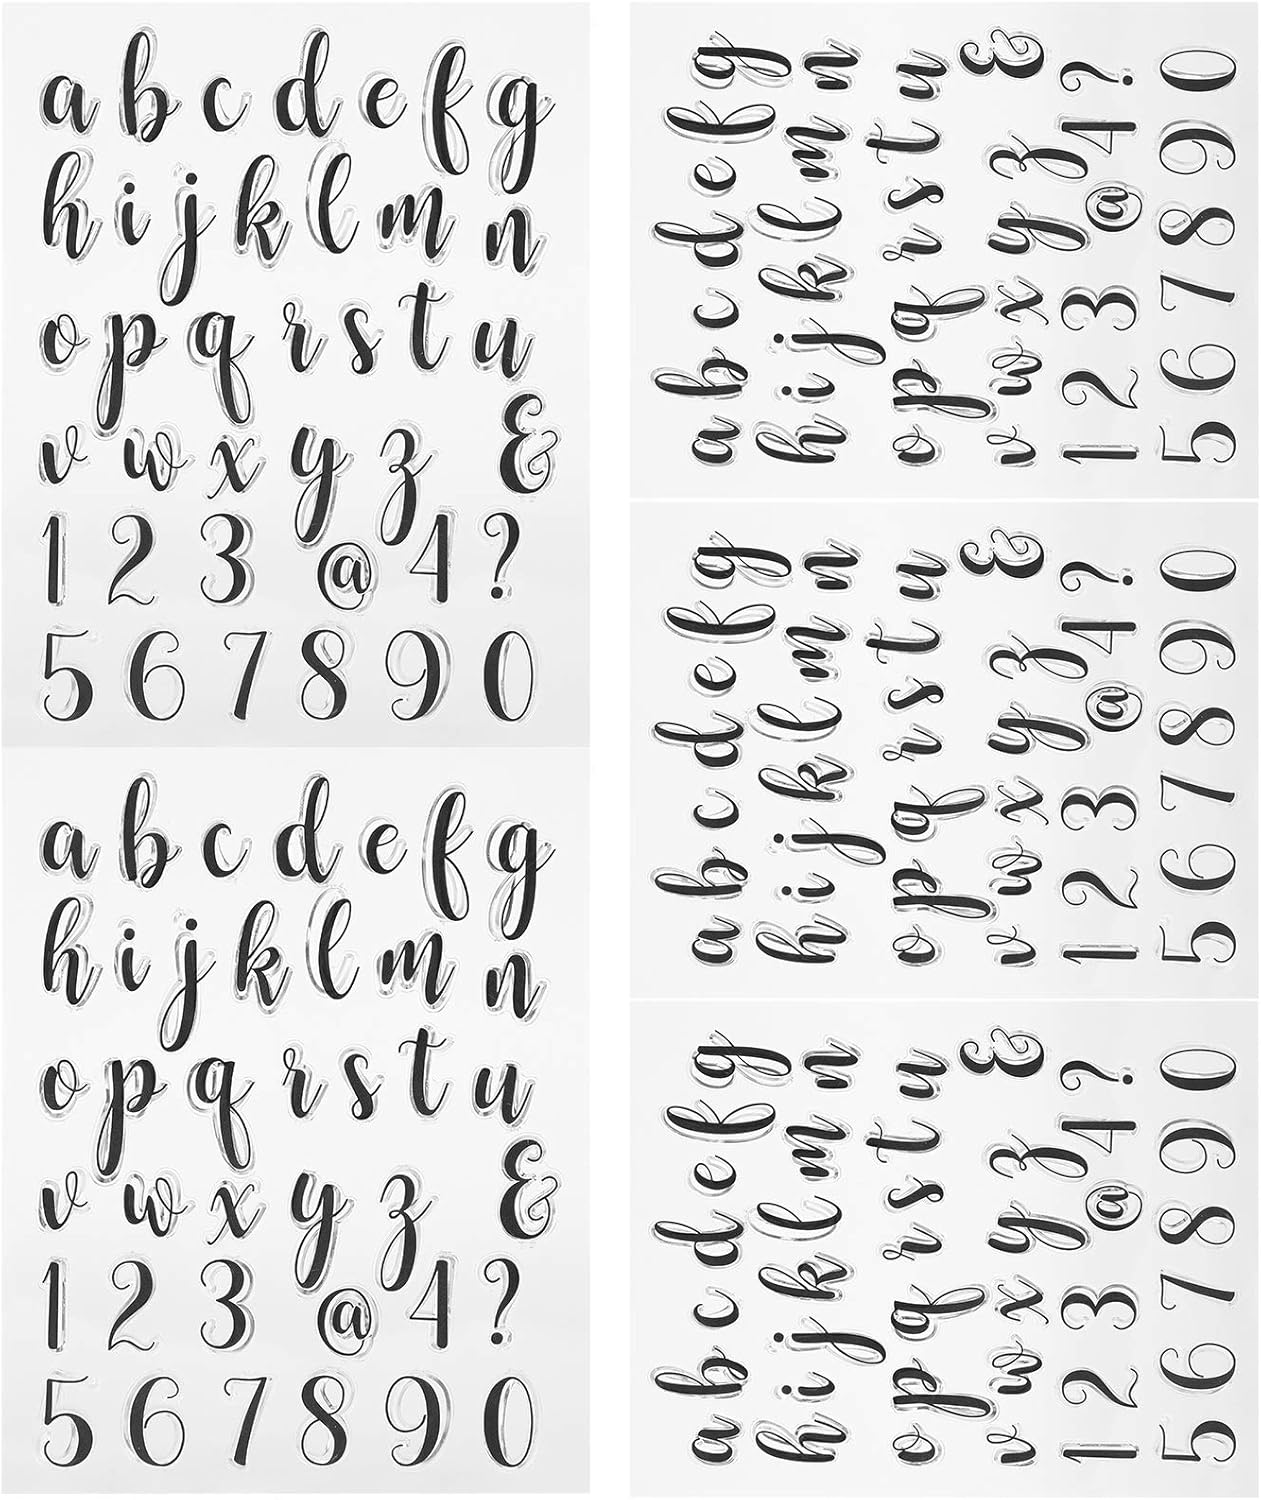 a b c d e f g
h i j k l m n
o p q r s t u
v w x y z &
1 2 3 @ 4 ?
5 6 7 8 9 0
a b c d e f g
h i j k l m n
o p q r s t u
v w x y z &
1 2 3 @ 4 ?
5 6 7 8 9 0
a b c d e f g
h i j k l m n
o p q r s t u
v w x y z &
1 2 3 @ 4 ?
5 6 7 8 9 0
a b c d e f g
h i j k l m n
o p q r s t u
v w x y z &
1 2 3 @ 4 ?
5 6 7 8 9 0
a b c d e f g
h i j k l m n
o p q r s t u
v w x y z &
1 2 3 @ 4 ?
5 6 7 8 9 0